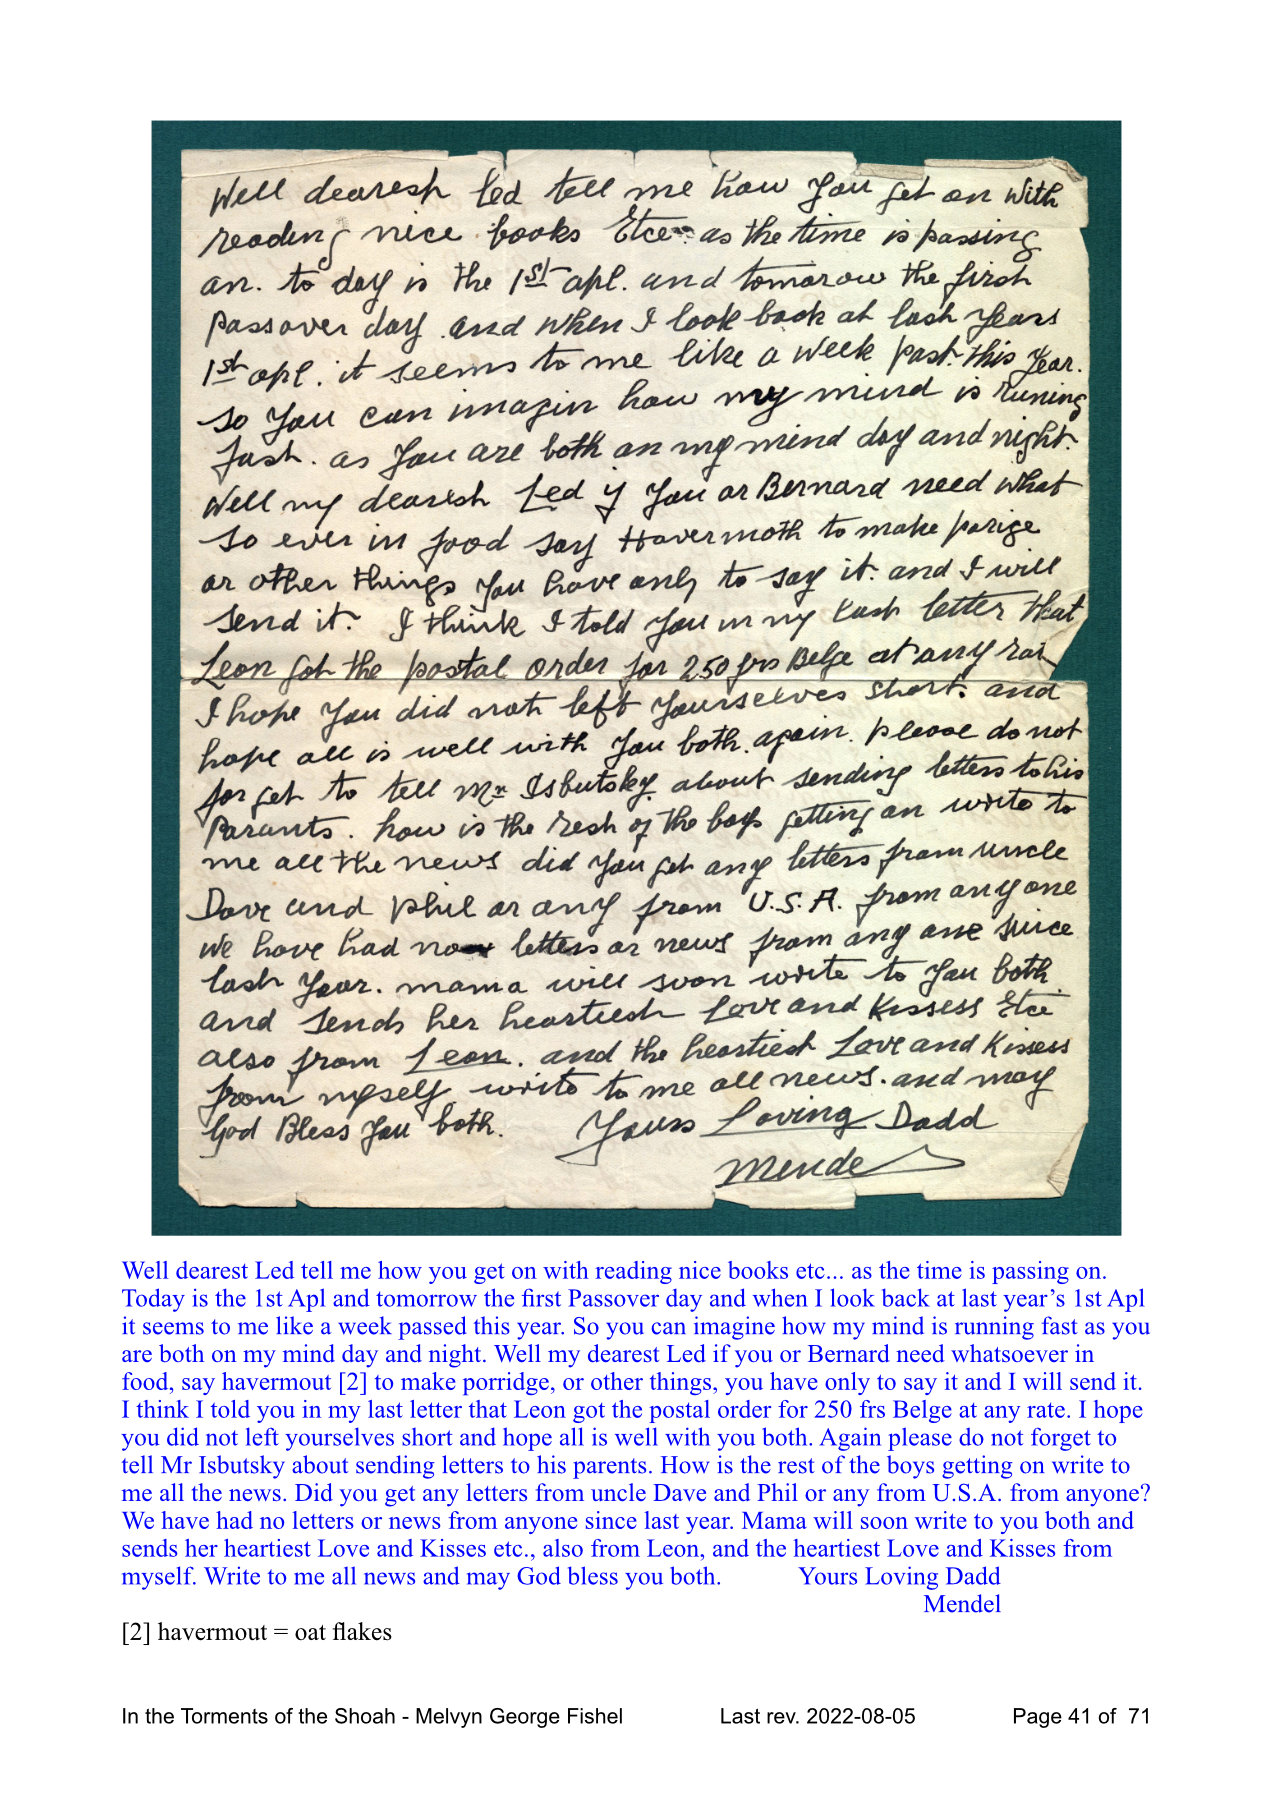 Well dearesh Led tell me how you get on with
reading nice books Etce as the time is passing
on. to day is the 1st apl. and tomorow the first
passover day and when I look back at last years
1st apl. it seems to me like a week past this year.
so you can imagin how my mind is runing
fast. as you are both on my mind day and night.
Well my dearest Led if you or Bernard need what
so ever in food say Havermoth to make parige
or other things you have only to say it. and I will
send it. I think I told you in my last letter that
Leon got the postal order for 250 frs Belge at any rat
I hope you did not left yourselves short. and
hope all is well with you both. again. please do not
for get to tell Mr Isbutsky. about sending letters to his
Parants. how is the rest of the boys getting on write to
me all the news did you get any letters from uncle
Dave and phil or any from U.S.A. from any one
We have had no letters or news from any one since
last year. mama will soon write to you both.
and sends her heartiest Love and Kissess Etce
also from Leon. and the heartiest Love and Kissess
from myself write to me all news. and may
God Bless you both. Yours Loving Dadd
Mendel
Well dearest Led tell me how you get on with reading nice books etc... as the time is passing on.
Today is the 1st Apl and tomorrow the first Passover day and when I look back at last year’s 1st Apl
it seems to me like a week passed this year. So you can imagine how my mind is running fast as you
are both on my mind day and night. Well my dearest Led if you or Bernard need whatsoever in
food, say havermout [2] to make porridge, or other things, you have only to say it and I will send it.
I think I told you in my last letter that Leon got the postal order for 250 frs Belge at any rate. I hope
you did not left yourselves short and hope all is well with you both. Again please do not forget to
tell Mr Isbutsky about sending letters to his parents. How is the rest of the boys getting on write to
me all the news. Did you get any letters from uncle Dave and Phil or any from U.S.A. from anyone?
We have had no letters or news from anyone since last year. Mama will soon write to you both and
sends her heartiest Love and Kisses etc., also from Leon, and the heartiest Love and Kisses from
myself. Write to me all news and may God bless you both. Yours Loving Dadd
Mendel
[2] havermout = oat flakes
In the Torments of the Shoah - Melvyn George Fishel Last rev. 2022-08-05 Page 41 of 71